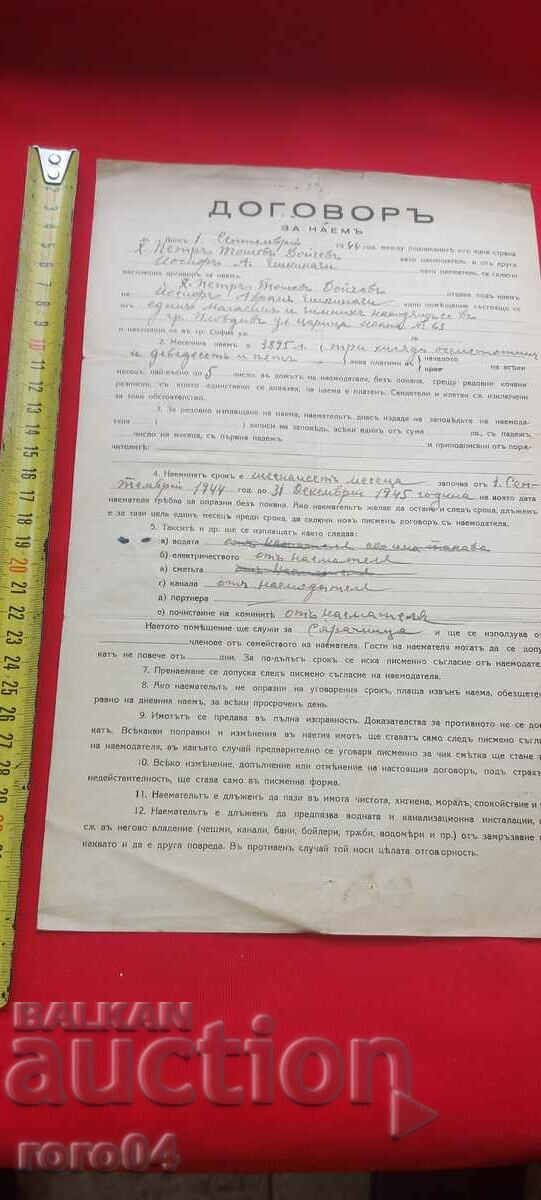 ДОГОВОРЪ
ЗА НАЕМЪ
Днесъ 1. Септемврий 1944 год. между подписаните отъ една страна
Х. Петъръ Тошевъ Войчевъ като наемодател и отъ друга
Иосифъ А. Ешкинази като наемателъ, се сключи
настоящия договоръ за наемъ
Х. Петъръ Тошевъ Войчевъ отдава подъ наемъ
на Иосифъ Аврамъ Ешкинази едно помещение състояще се
единъ магазинъ и зимникъ находящъ се въ
гр. Пловдивъ ул. Царица Иоана № 63
и находящи се въ гр. София ул. №
2. Месечния наемъ е 3895 л. (три хиляди осемстотинъ
и деведесеть и петъ) лева платими въ началото на всѣки
края
месецъ, най-късно до 5 число, въ домътъ на наемодателя, безъ покана, срещу редовни книжни
разписки, съ които единствено се доказва, че наема е платенъ. Свидетели и клетви сѫ изключени
за това обстоятелство.
3. За редовно изплащане на наема, наемательтъ днесъ издаде на заповѣдьта на наемода-
теля ( ) записи на заповѣдь, всѣки единъ отъ сума лв., съ падежъ
число на месеца, съ първа падежъ и приподписани отъ поръ-
чителитѣ:
4. Наемниятъ срокъ е шеснайсеть месеца започва отъ 1. Сеп-
темврий 1944 год. до 31 Декемврий 1945 година на която дата
наемателя трѣбва да опразни безъ покана. Ако наемательтъ желае да остане и следъ срока, длъженъ
е за тази цель единъ месецъ преди срока, да сключи новъ писменъ договоръ съ наемодателя.
5. Такситѣ и др. ще се изплащатъ както следва:
а) водата отъ наемателя ако има такава
б) електричеството отъ наемателя
в) сметьта отъ наемателя
с) канала отъ наемодателя
д) портиера
е) почистване на коминитѣ отъ наемателя
Наетото помещение ще служи за Сарачница и ще се използува от
членове отъ семейството на наемателя. Гости на наемателя могатъ да се допу-
катъ не повече отъ дни. За по-дълъгъ срокъ се иска писмено съгласие отъ наемодате
7. Пренаемане се допуска следъ писмено съгласие на наемодателя.
8. Ако наемательтъ не опразни на уговорения срокъ, плаща извънъ наема, обезщете
равно на дневния наемъ, за всѣки просроченъ день.
9. Имотътъ се предава въ пълна изправность. Доказателства за противното не се до
катъ. Всѣкакви поправки и измѣнения въ наетия имотъ ще ставатъ само следъ писмено съгл
на наемодателя, въ какъвто случай предварително се уговаря писмено за чия смѣтка ще стане
10. Всѣко измѣнение, допълнение или отмѣнение на настоящия договоръ, подъ страхъ
недействителность, ще става само въ писменна форма.
11. Наемательтъ е длъженъ да пази въ имота чистота, хигиена, моралъ, спокойствие и
12. Наемательтъ е длъженъ да предпазва водната и канализационна инсталации,
сѫ въ негово владение (чешми, канали, бани, бойлери, трѫби, водомѣри и пр.) отъ замръзване
каквато и да е друга повреда. Въ противенъ случай той носи цѣлата отговорность.
BALKAN
auction
roro04